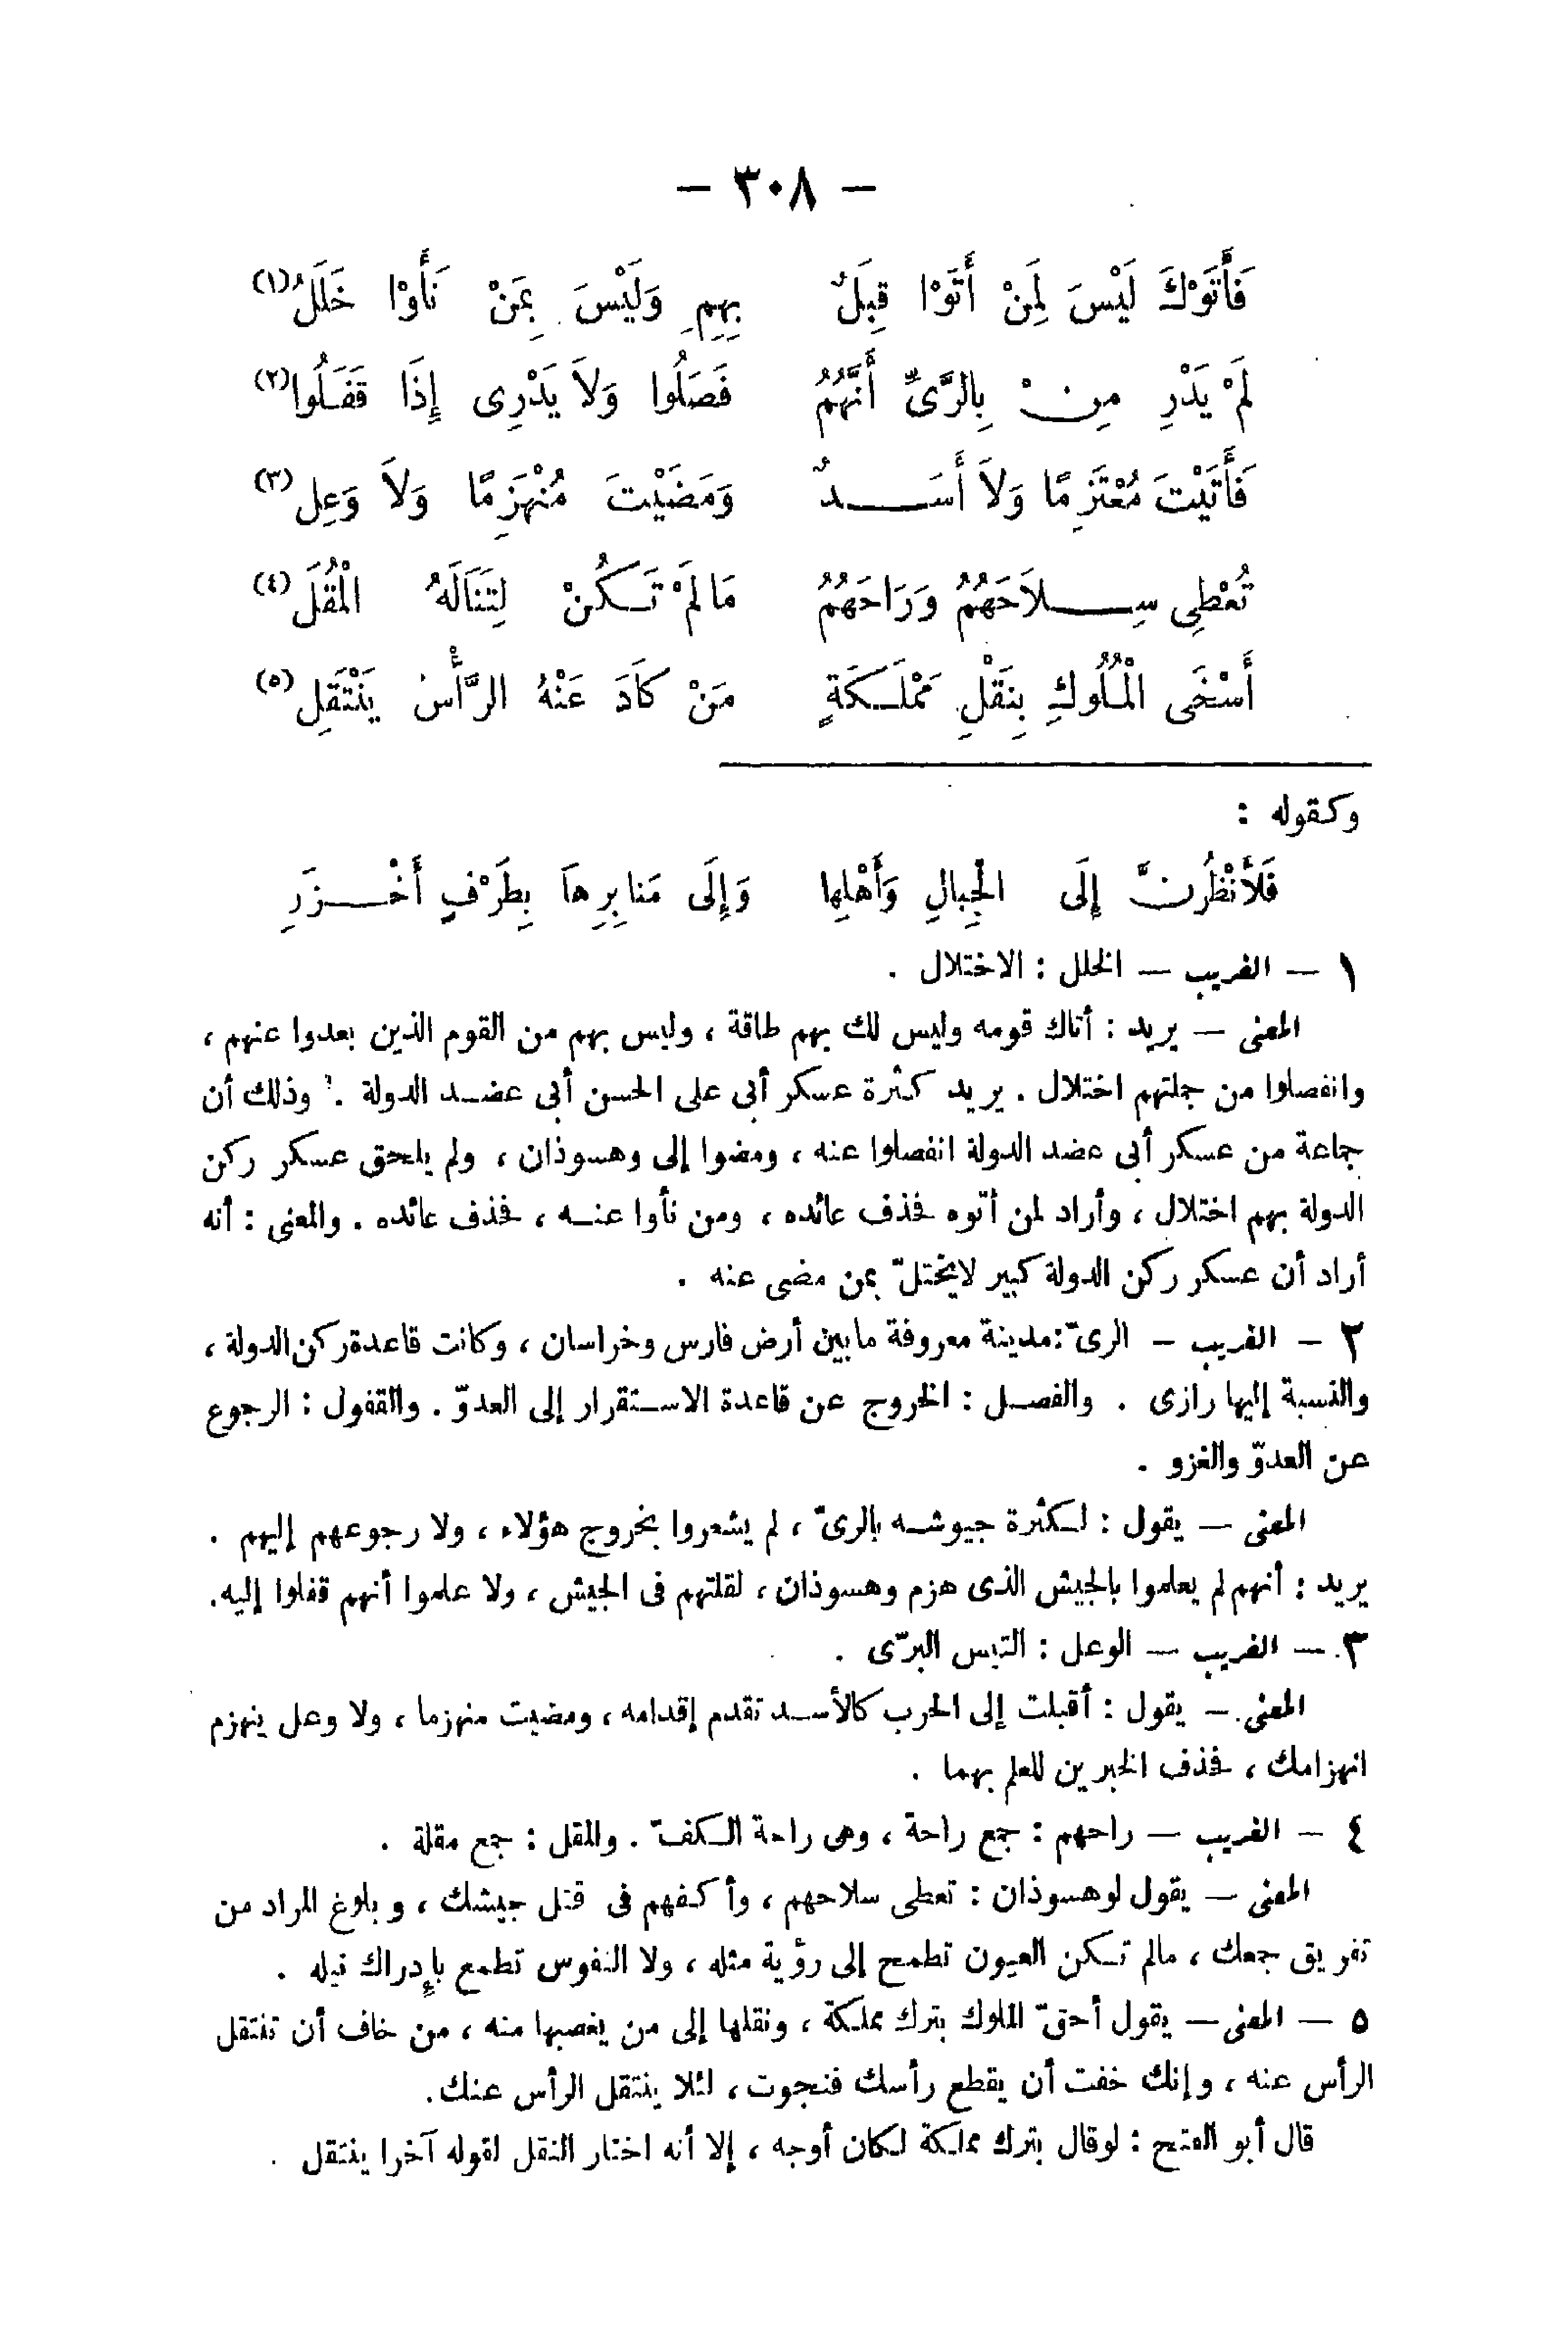 — ٣٠٨ —
فَأَتَوْكَ لَيْسَ لِمَنْ أَتَوْا قِبَلٌ بِهِمِ وَلَيْسَ بِمَنْ نَأَوْا خَلَلُ (١)
لَمْ يَدْرِ مِنْ بِالرَّىِّ أَنَّهُمُ فَصَلُوا وَلاَ يَدْرِى إِذَا قَفَلُوا (٢)
فَأَتَيْتَ مُعْتَزِمًا وَلاَ أَسَدٌ وَمَضَيْتَ مُنْهَزِمًا وَلاَ وَعِل (٣)
تُعْطِى سِلاَحَهُمُ وَرَاحَهُمُ مَالَمْ تَكُنْ لِتَنَالَهُ الْمُقُلَ (٤)
أَسْخَى الْمُلُوكِ بِنَقْلِ مَمْلَكَةٍ مَنْ كَادَ عَنْهُ الرَّأْسُ يَنْتَقِل (٥)
وكقوله :
فَلَأَنْظُرَنَّ إِلَى الْجِبالِ وَأَهْلِها وَإِلَى مَنابِرِهاَ بِطَرْفٍ أَخْزَرِ
١ — الغريب — الخلل : الاختلال .
المعنى — يريد : أتاك قومه وليس لك بهم طاقة ، وليس بهم من القوم الذين بعدوا عنهم ،
وانفصلوا من جملتهم اختلال . يريد كثرة عسكر أبى على الحسن أبى عضد الدولة . وذلك أن
جماعة من عسكر أبى عضد الدولة انفصلوا عنه ، ومضوا إلى وهسوذان ، ولم يلحق عسكر ركن
الدولة بهم اختلال ، وأراد لمن أتوه فحذف عائده ، ومن نأوا عنه ، فحذف عائده . والمعنى : أنه
أراد أن عسكر ركن الدولة كبير لايختلّ بمن مضى عنه .
٢ — الغريب — الرىّ : مدينة معروفة مابين أرض فارس وخراسان ، وكانت قاعدة ركن الدولة ،
والنسبة إليها رازى . والفصل : الخروج عن قاعدة الاستقرار إلى العدوّ . والقفول : الرجوع
عن العدوّ والغزو .
المعنى — يقول : لكثرة جيوشه بالرىّ ، لم يشعروا بخروج هؤلاء ، ولا رجوعهم إليهم .
يريد : أنهم لم يعلموا بالجيش الذى هزم وهسوذان ، لقلتهم فى الجيش ، ولا علموا أنهم قفلوا إليه.
٣ — الغريب — الوعل : التيس البرّى .
المعنى — يقول : أقبلت إلى الحرب كالأسد تقدم إقدامه ، ومضيت منهزما ، ولا وعل ينهزم
انهزامك ، فحذف الخبرين للعلم بهما .
٤ — الغريب — راحهم : جمع راحة ، وهى راحة الكفّ . والمقل : جمع مقلة .
المعنى — يقول لوهسوذان : تعطى سلاحهم ، وأكفهم فى قتل جيشك ، وبلوغ المراد من
تفريق جمعك ، مالم تكن العيون تطمح إلى رؤية مثله ، ولا النفوس تطمع بإدراك نيله .
٥ — المعنى — يقول أحقّ الملوك بترك مملكة ، ونقلها إلى من يغصبها منه ، من خاف أن تنتقل
الرأس عنه ، وإنك خفت أن يقطع رأسك فنجوت ، لئلا ينتقل الرأس عنك.
قال أبو الفتح : لوقال بترك مملكة لكان أوجه ، إلا أنه اختار النقل لقوله آخرا ينتقل .